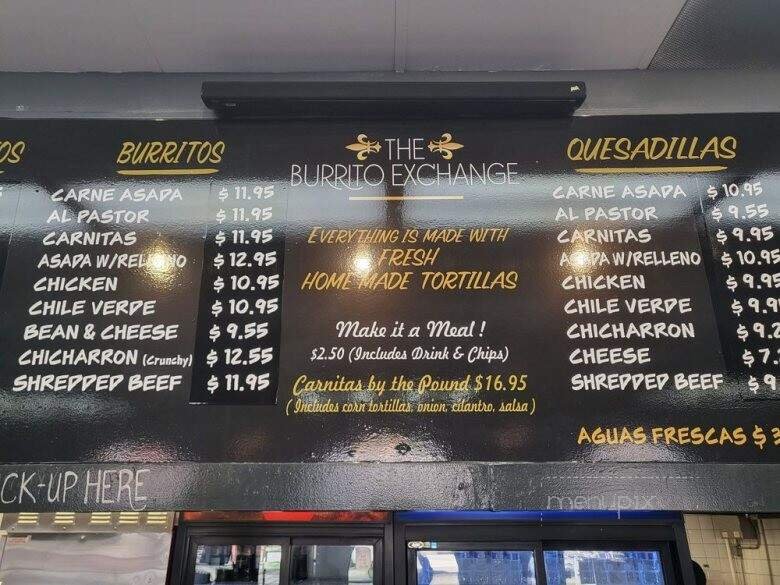 OS
BURRITOS
CARNE ASADA $ 11.95
AL PASTOR $ 11.95
CARNITAS $ 11.95
ASADA W/RELLENO $ 12.95
CHICKEN $ 10.95
CHILE VERDE $ 10.95
BEAN & CHEESE $ 9.55
CHICHARRON (Crunchy) $ 12.55
SHREDDED BEEF $ 11.95
THE
BURRITO EXCHANGE
EVERYTHING IS MADE WITH
FRESH
HOME MADE TORTILLAS
Make it a Meal!
$2.50 (Includes Drink & Chips)
Carnitas by the Pound $16.95
(Includes corn tortillas, onion, cilantro, salsa)
QUESADILLAS
CARNE ASADA $ 10.95
AL PASTOR $ 9.55
CARNITAS $ 9.95
ASADA W/RELLENO $ 10.95
CHICKEN $ 9.95
CHILE VERDE $ 9.9
CHICHARRON $ 9.2
CHEESE $ 7.
SHREDDED BEEF $ 9
AGUAS FRESCAS $ 3
CK-UP HERE
menupix